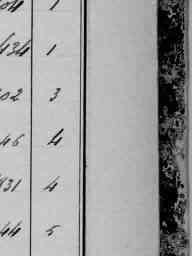 04 1
434 1
02 3
46 4
431 4
44 5